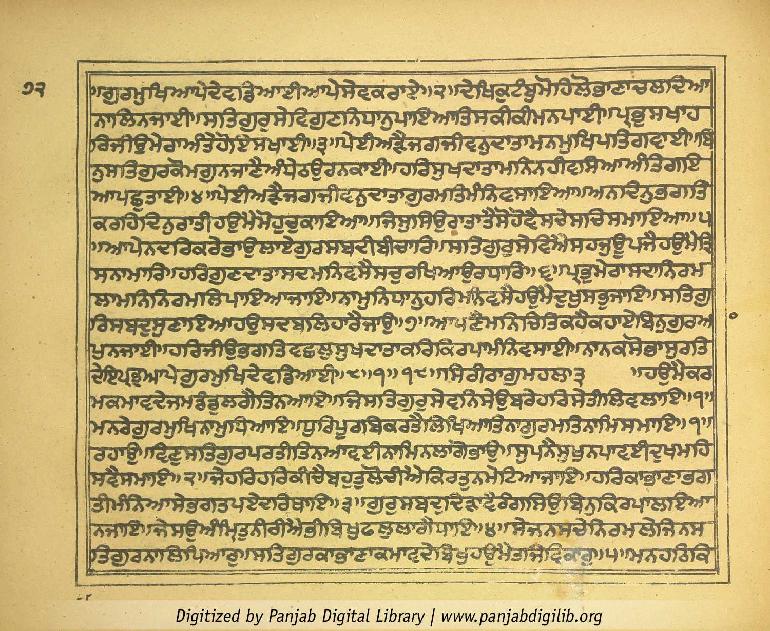 ੭੨
॥ਗੁਰਮੁਖਿਆਪੇਦੇਵਡਿਆਈਆਪੇਸੇਵਕਰਾਏ॥੨॥ਦੇਖਿਕੁਟੰਬੁਮੋਹਿਲੋਭਾਣਾਚਲਦਿਆ
ਨਾਲਿਨਜਾਈ॥ਸਤਿਗੁਰੁਸੇਵਿਗੁਣਨਿਧਾਨੁਪਾਇਆਤਿਸਕੀਕੀਮਨਪਾਈ॥ਪ੍ਰਭੁਸਖਾਹ
ਰਿਜੀਉਮੇਰਾਅੰਤੇਹੋਇਸਖਾਈ॥੩॥ਪੇਈਅੜੈਜਗਜੀਵਨੁਦਾਤਾਮਨਮੁਖਿਪਤਿਗਵਾਈ॥ਬਿ
ਨੁਸਤਿਗੁਰਕੋਮਗੁਨਜਾਣੈਅੰਧੇਠਉਰਨਕਾਈ॥ਹਰਿਸੁਖਦਾਤਾਮਨਿਨਹੀਵਸਿਆਅੰਤਿਗਇ
ਆਪਛੁਤਾਈ॥੪॥ਪੇਈਅੜੈਜਗਜੀਵਨੁਦਾਤਾਗੁਰਮਤਿਮੰਨਿਵਸਾਇਆ॥ਅਨਦਿਨੁਭਗਤਿ
ਕਰਹਿਦਿਨੁਰਾਤੀਹਉਮੈਮੋਹੁਚੁਕਾਇਆ॥ਜਿਸੁਸਿਉਰਾਤਾਤੈਸੋਹੋਵੈਸਚੇਸਚਿਸਮਾਇਆ॥੫
॥ਆਪੇਨਦਰਿਕਰੇਭਾਉਲਾਏਗੁਰਸਬਦੀਬੀਚਾਰਿ॥ਸਤਿਗੁਰੁਸੇਵਿਐਸਹਜੁਊਪਜੈਹਉਮੈਤ੍ਰਿ
ਸਨਾਮਾਰਿ॥ਹਰਿਗੁਣਦਾਤਾਸਦਮਨਿਵਸੈਸਚੁਰਖਿਆਉਰਧਾਰਿ॥੬॥ਪ੍ਰਭੁਮੇਰਾਸਦਾਨਿਰਮ
ਲਾਮਨਿਨਿਰਮਲਿਪਾਇਆਜਾਇ॥ਨਾਮੁਨਿਧਾਨੁਹਰਿਮਨਿਵਸੈਹਉਮੈਦੁਖੁਸਭੁਜਾਇ॥ਸਤਿਗੁ
ਰਿਸਬਦੁਸੁਣਾਇਆਹਉਸਦਬਲਿਹਾਰੈਜਾਉ॥੭॥ਆਪਣੈਮਨਿਚਿਤਿਕਹੈਕਹਾਏਬਿਨੁਗੁਰਆ
ਪੁਨਜਾਈ॥ਹਰਿਜੀਉਭਗਤਿਵਛਲੁਸੁਖਦਾਤਾਕਰਿਕਿਰਪਾਮੰਨਿਵਸਾਈ॥ਨਾਨਕਸੋਭਾਸੁਰਤਿ
ਦੇਇਪ੍ਰਭੁਆਪੇਗੁਰਮੁਖਿਦੇਵਡਿਆਈ॥੮॥੧॥੧੮॥ਸਿਰੀਰਾਗੁਮਹਲਾ੩ ॥ਹਉਮੈਕਰ
ਮਕਮਾਵਦੇਜਮਡੰਡੁਲਗੈਤਿਨਆਇ॥ਜਿਸਤਿਗੁਰੁਸੇਵਨਿਸੇਉਬਰੇਹਰਿਸੇਤੀਲਿਵਲਾਇ॥੧॥
ਮਨਰੇਗੁਰਮੁਖਿਨਾਮੁਧਿਆਇ॥ਧੁਰਿਪੂਰਬਿਕਰਤੈਲਿਖਿਆਤਿਨਾਗੁਰਮਤਿਨਾਮਿਸਮਾਇ॥੧॥
ਰਹਾਉ॥ਵਿਣੁਸਤਿਗੁਰਪਰਤੀਤਿਨਆਵਈਨਾਮਿਨਲਾਗੋਭਾਉ॥ਸੁਪਨੈਸੁਖੁਨਪਾਵਈਦੁਖਮਹਿ
ਸਵੈਸਮਾਇ॥੨॥ਜੇਹਰਿਹਰਿਕੀਚੈਬਹੁਤੁਲੋਚੀਐਕਿਰਤੁਨਮੇਟਿਆਜਾਇ॥ਹਰਿਕਾਭਾਣਾਭਗ
ਤੀਮੰਨਿਆਸੇਭਗਤਪਏਦਰਿਥਾਇ॥੩॥ਗੁਰੁਸਬਦੁਦਿੜਾਵੈਰੰਗਸਿਉਬਿਨੁਕਿਰਪਾਲਇਆ
ਨਜਾਇ॥ਜੇਸਉਅੰਮ੍ਰਿਤੁਨੀਰੀਐਭੀਬਿਖੁਫਲੁਲਾਗੈਧਾਇ॥੪॥ਸੇਜਨਸਚੇਨਿਰਮਲੇਜਿਨਸ
ਤਿਗੁਰਨਾਲਿਪਿਆਰੁ॥ਸਤਿਗੁਰਕਾਭਾਣਾਕਮਾਵਦੇਬਿਖੁਹਉਮੈਤਜਿਵਿਕਾਰੁ॥੫॥ਮਨਹਠਿਕਿ
Digitized by Panjab Digital Library | www.panjabdigilib.org